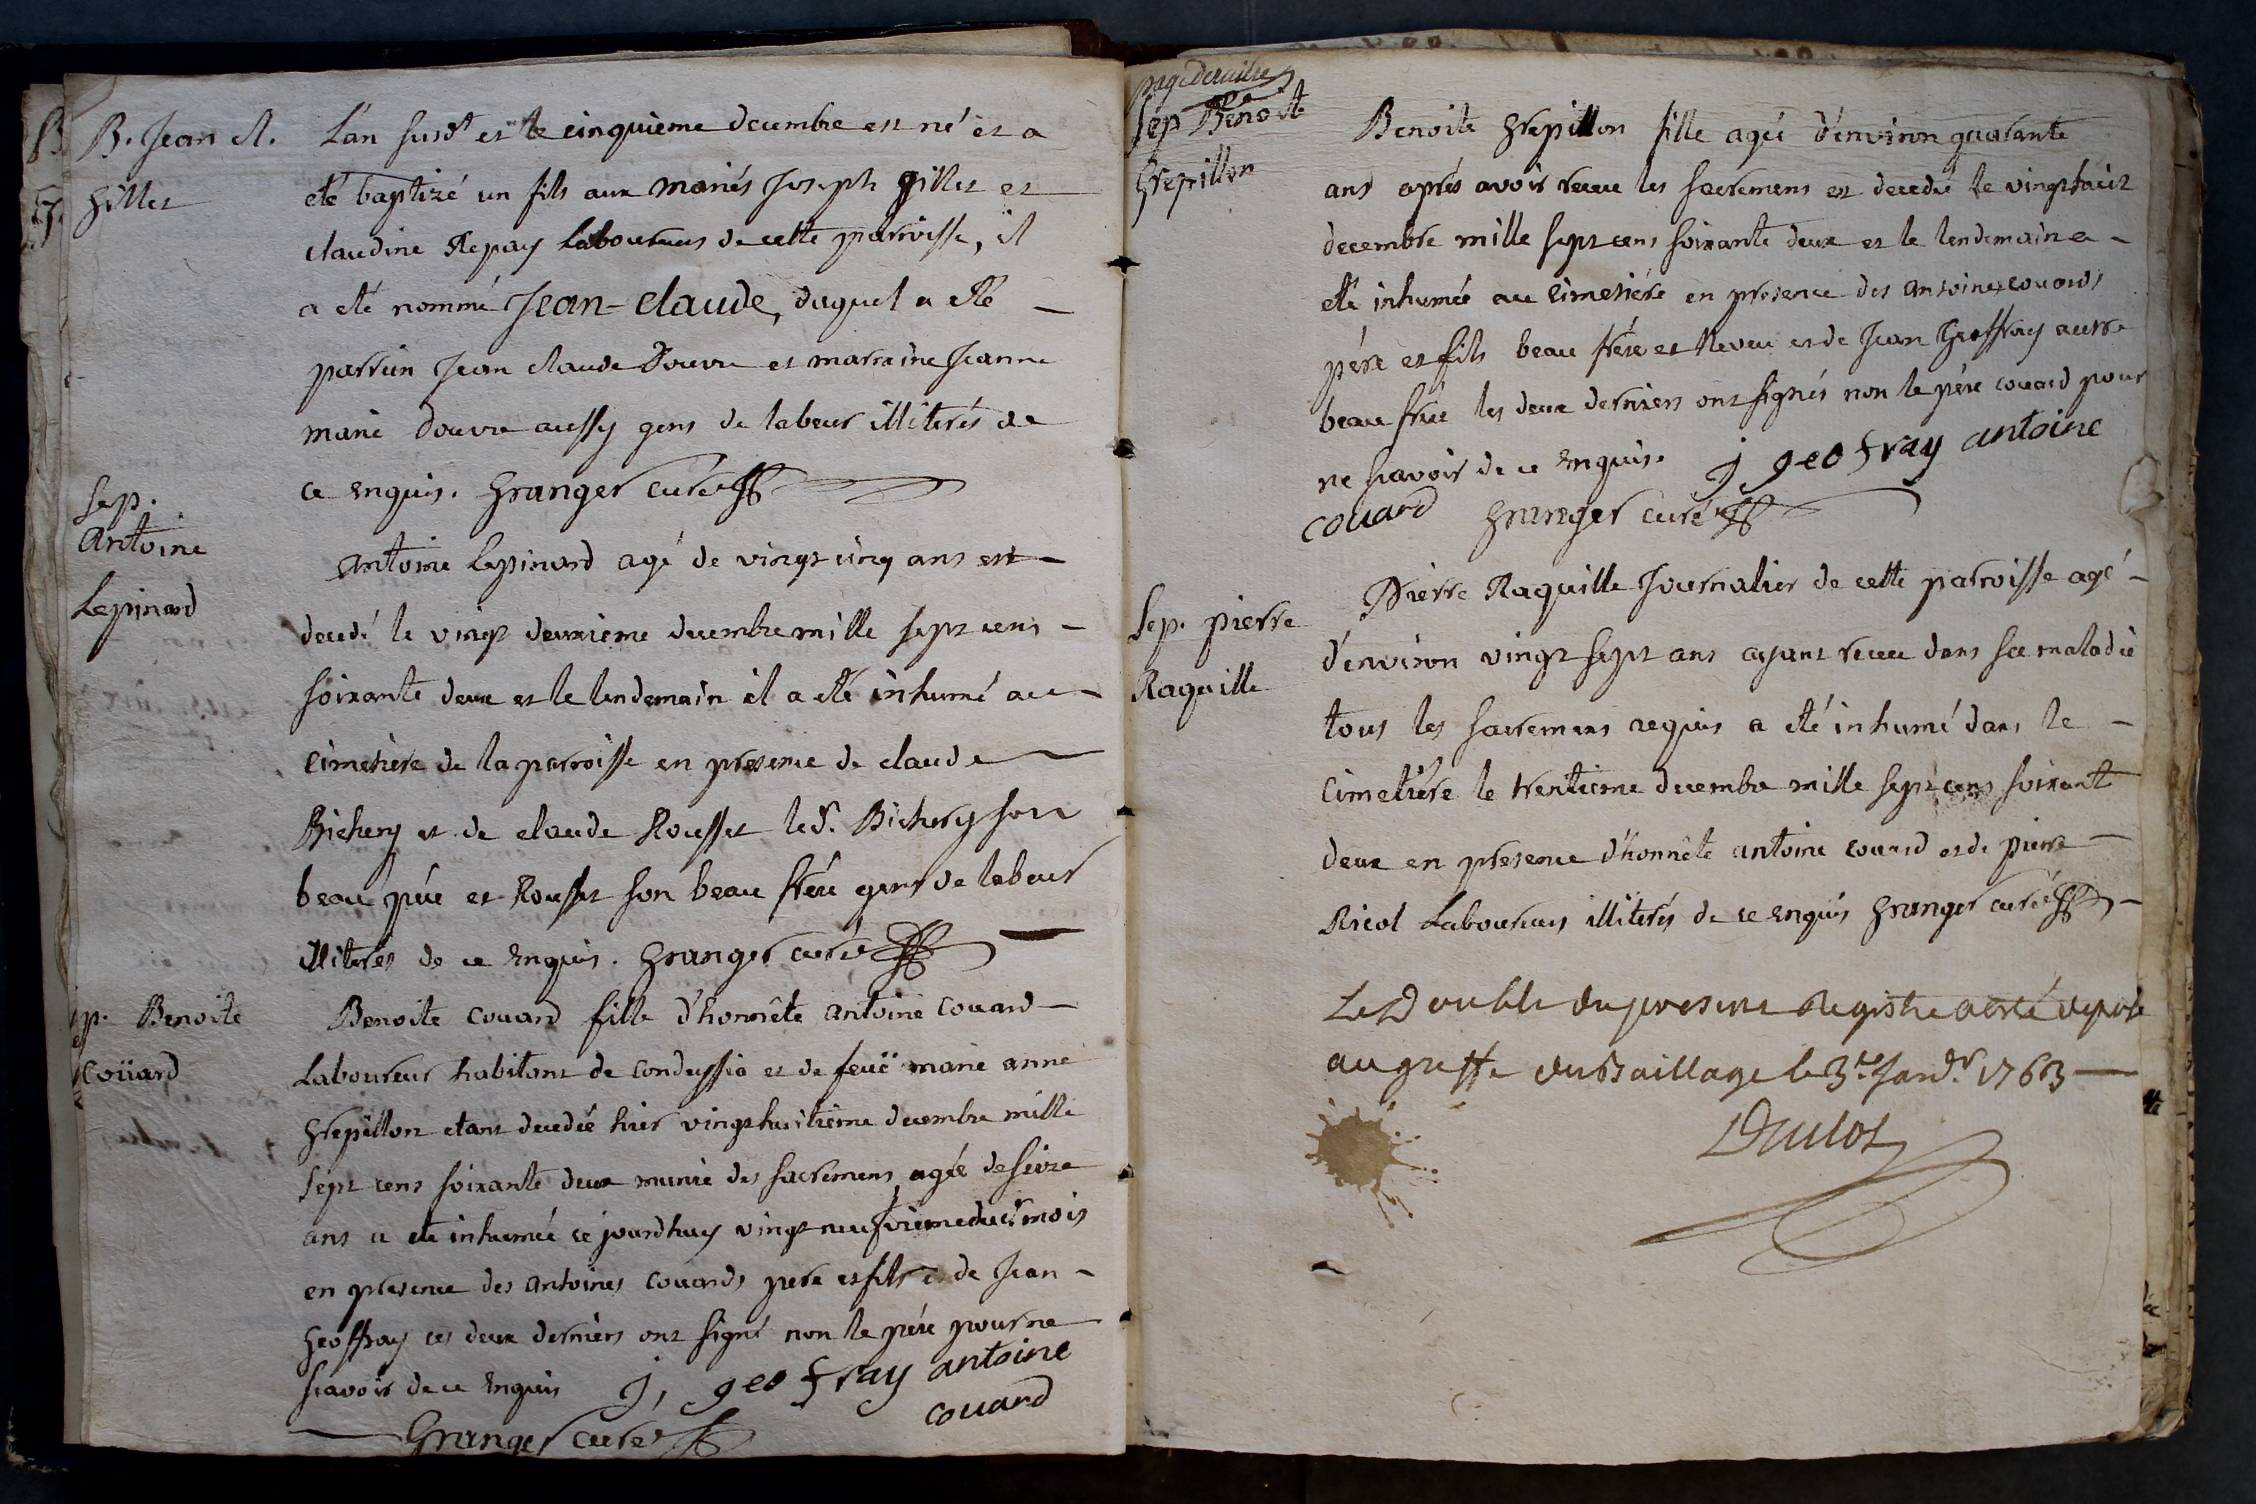 B. Jean cl.
Gillet
L'an susd.t et le cinquieme decembre est né et a
eté baptizé un fils aux mariés Joseph gillet et
claudine Repay laboureurs de cette parroisse, il
a eté nommé Jean-claude, duquel a eté
parrain Jean claude Douvre et marraine Jeanne
marie douvre aussy gens de labeur illiterés de
ce enquis. Granger curé
Sep.
Antoine
Lepinard
antoine lepinard agé de vingt cinq ans est
decedé le vingt deuxieme decembre mille sept cens
soixante deux et le lendemain il a eté inhumé au
cimetiere de la parroisse en presence de claude
Bichery et de claude Rousset led. Bichery son
beau pere et Rousset son beau frére gens de labeur
illiterés de ce enquis. Granger curé
Sep. Benoite
Coüard
Benoite Couard fille d'honnête antoine Couard
Laboureur habitant de condessia et de feüe marie anne
Grepillon etant decedée hier vingt huitieme decembre mille
sept cens soixante deux munie des sacremens, agée de seize
ans a eté inhumée ce jourdhuy vingt neufvieme dud. mois
en presence des antoines couards pere et fils et de Jean
Geoffray ces deux derniers ont signé non le pére pour ne
scavoir de ce enquis j, geofray antoine
couard
Granger curé
page derniere
Sep Benoite
Grepillon
Benoite Grepillon fille agée d'environ quarante
ans aprés avoir receu les sacremens est decedée le vingt huit
decembre mille sept cens soixante deux et le lendemain a
eté inhumée au cimetiére en presence des antoines couards
pére et fils beau frére et Neveu et de Jean Geoffray autre
beau frére les deux derniers ont signés non le pére couard pour
ne scavoir de ce enquis. j geofray antoine
couard Granger curé
Sep. pierre
Raquille
Pierre Raquille Journalier de cette parroisse agé
d'environ vingt sept ans ayant receu dans sa maladie
tous les sacremens requis a eté inhumé dans le
cimetiére le trentieme decembre mille sept cens soixant
deux en presence d'honnête antoine couard et de pierre
Ricol Laboureurs illiterés de ce enquis Granger curé
Le Double du present Registre a esté deposé
au greffe du Baillage le 3.e Janv.r 1763